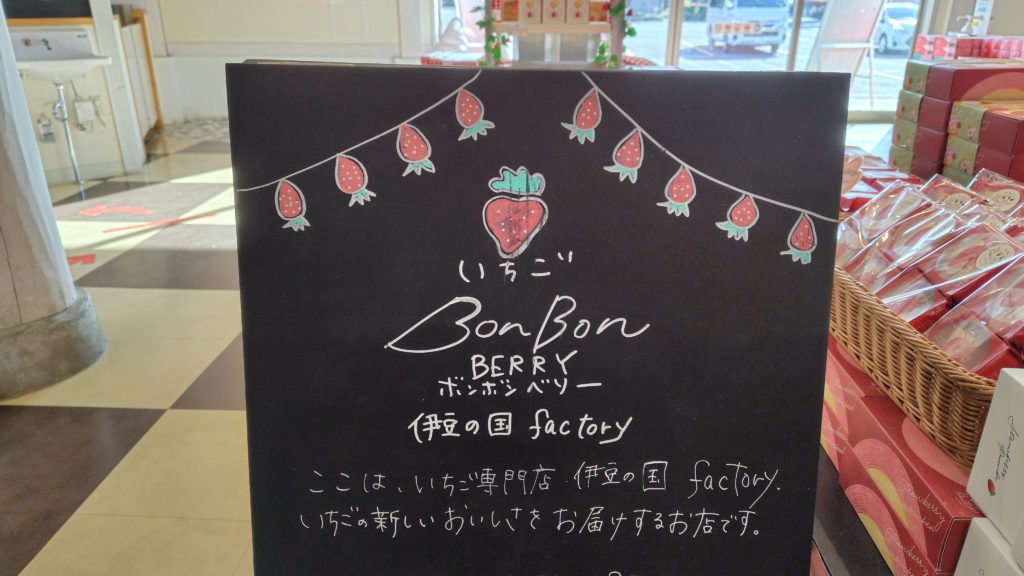 いちご
BonBon
BERRY
ボンボンベリー
伊豆の国 factory
ここは、いちご専門店 伊豆の国 factory.
いちごの新しいおいしさを お届けするお店です。